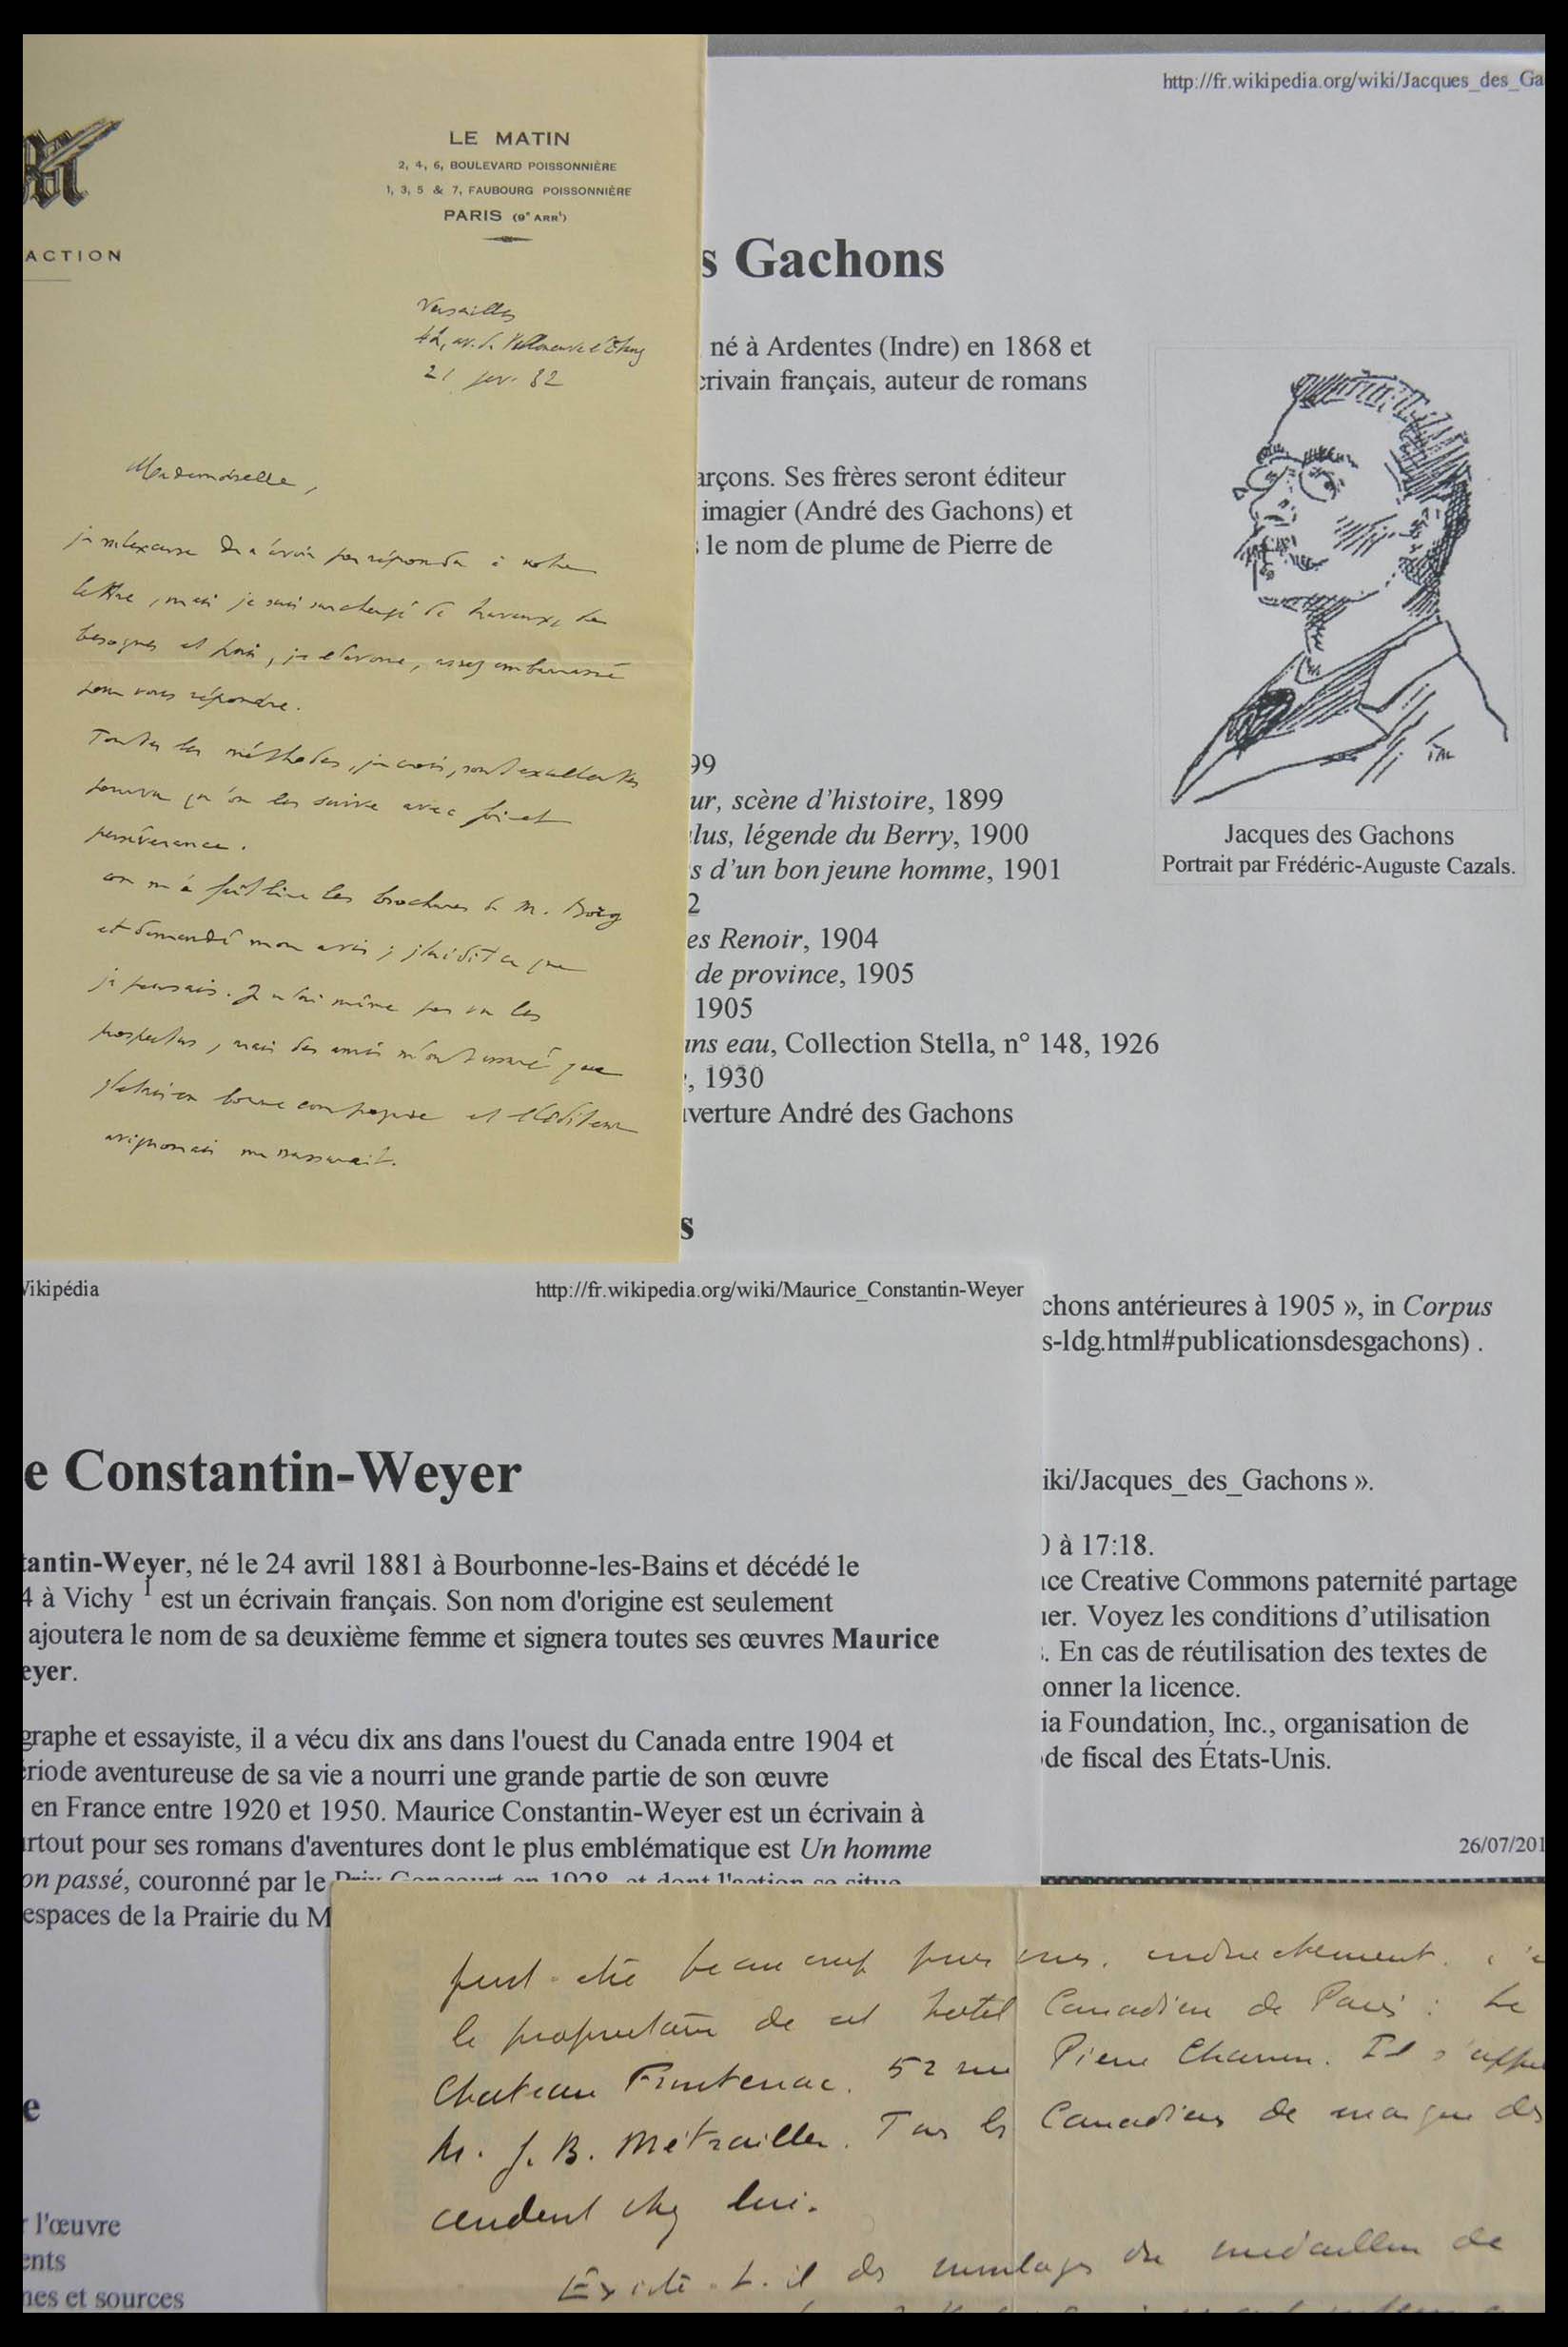 ACTION
LE MATIN
2, 4, 6, BOULEVARD POISSONNIÈRE
1, 3, 5 & 7, FAUBOURG POISSONNIÈRE
PARIS (9e ARRt)
Versailles
21 32
Mademoiselle,
je m'excuse de n'avoir pas répondu à votre
lettre, mais je suis surchargé de travaux, de
besognes et puis, je l'avoue, assez embarrassé
pour vous répondre.
Toutes les méthodes, je crois, sont excellentes
pourvu qu'on les suive avec foi et
persévérance.
on m'a fait lire les brochures de M. Borg
et demandé mon avis ; j'ai dit ce que
je pensais. Je n'ai même pas vu les
prospectus, mais des amis m'ont assuré que
j'étais en bonne compagnie et l'éditeur
avignonais me rassurait.
http://fr.wikipedia.org/wiki/Jacques_des_Ga
s Gachons
né à Ardentes (Indre) en 1868 et
crivain français, auteur de romans
arçons. Ses frères seront éditeur
imagier (André des Gachons) et
le nom de plume de Pierre de
99
ur, scène d'histoire, 1899
lus, légende du Berry, 1900
s d'un bon jeune homme, 1901
2
es Renoir, 1904
de province, 1905
1905
ans eau, Collection Stella, n° 148, 1926
, 1930
uverture André des Gachons
s
Jacques des Gachons
Portrait par Frédéric-Auguste Cazals.
chons antérieures à 1905 », in Corpus
s-ldg.html#publicationsdesgachons) .
iki/Jacques_des_Gachons ».
) à 17:18.
nce Creative Commons paternité partage
uer. Voyez les conditions d'utilisation
. En cas de réutilisation des textes de
onner la licence.
ia Foundation, Inc., organisation de
de fiscal des États-Unis.
26/07/201
Vikipédia
http://fr.wikipedia.org/wiki/Maurice_Constantin-Weyer
e Constantin-Weyer
tantin-Weyer, né le 24 avril 1881 à Bourbonne-les-Bains et décédé le
4 à Vichy 1 est un écrivain français. Son nom d'origine est seulement
ajoutera le nom de sa deuxième femme et signera toutes ses œuvres Maurice
eyer.
graphe et essayiste, il a vécu dix ans dans l'ouest du Canada entre 1904 et
ériode aventureuse de sa vie a nourri une grande partie de son œuvre
en France entre 1920 et 1950. Maurice Constantin-Weyer est un écrivain à
urtout pour ses romans d'aventures dont le plus emblématique est Un homme
on passé, couronné par le Prix Goncourt en 1928, et dont l'action se situe
espaces de la Prairie du M
e
l'œuvre
ents
nes et sources
peut-être beaucoup pour vous, indirectement.
le propriétaire de cet hotel Canadien de Paris : Le
Chateau Frontenac. 52 rue Pierre Charron. Il s'appe
M. J. B. Métrailler. Tous les Canadiens de marque des
cendent chez lui.
Existe-t-il des moulages du médaillon de